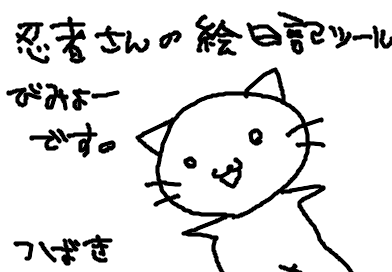 忍者さんの絵日記ツール
びみょー
です。
つばき